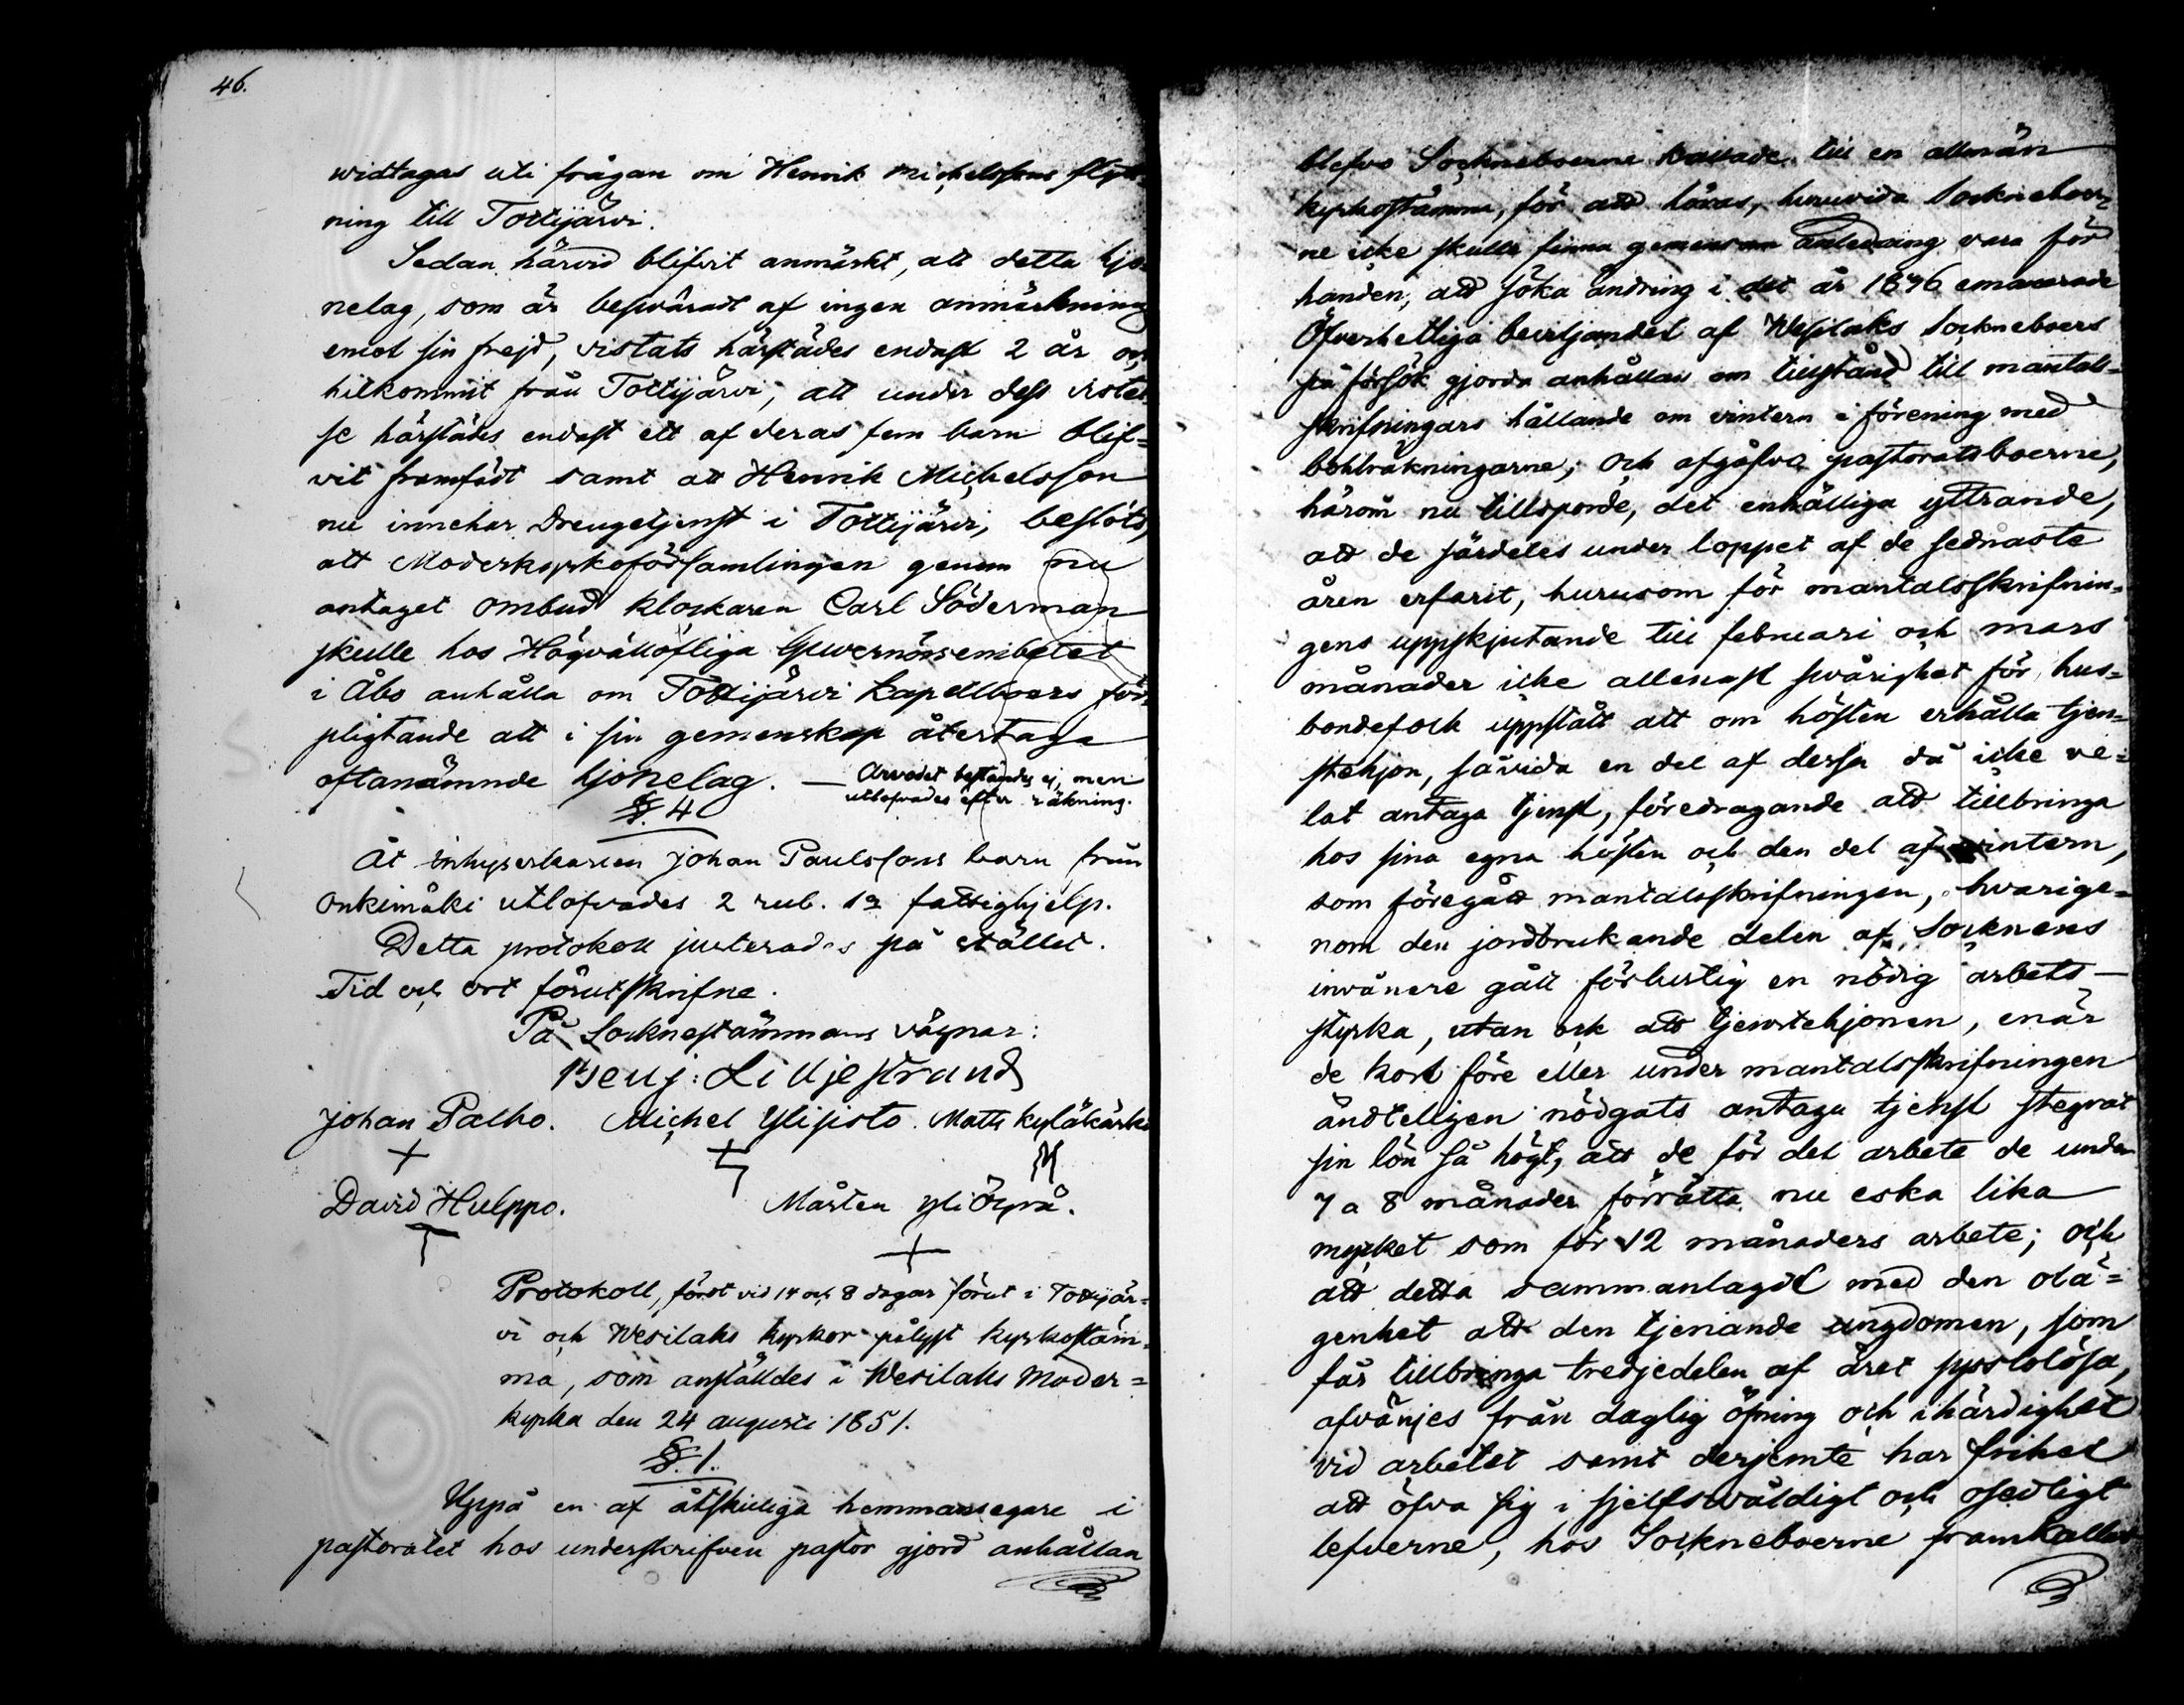 46.
widtagas uti frågan om Henrik Michelssons flytt-
ning till Tottijärvi.
Sedan härvid blifvit anmärkt, att detta hjo-
nelag, som är besväradt af ingen anmärkning
emot sin frejd, vistats härstädes endast 2 år och
hitkommit från Tottijärvi, att under dess vistel-
se härstädes endast ett af deras fem barn blif-
vit framfödt samt att Henrik Michelsson
nu innehar drengetjenst i Tottijärvi, beslöts,
att Moderkyrkoförsamlingen genom nu
antaget ombud klockaren Carl Söderman
skulle hos Högvällofliga Guvernörsembetet
i Åbo anhålla om Tottijärvi kapellboers för-
pligtande att i sin gemenskap återtaga
oftanämnde hjonelag. — Arvodet bestämdes ej, men
utlofvades efter räkning.
§. 4
Åt inhyserkarlen Johan Paulssons barn från
Onkemäki utlofvades 2 rub. i fattighjelp.
Detta protokoll justerades på stället.
Tid och ort förutskrifne.
På Socknestämmans vägnar:
Benj: Lilljestrand
Johan Palho. Michel Ylisisto. Matts Kyläkärki
David Hulppo. Mårten Yli Öyrä.
Protokoll, fördt vid 14 och 8 dagar förut i Tottijär-
vi och Wesilaks kyrkor pålyst kyrkostäm-
ma, som anställdes i Wesilaks Moder-
kyrka den 24 augusti 1851.
§. 1.
Uppå en af åtskilliga hemmansegare i
pastoratet hos underskrifven pastor gjord anhållan
blefvo Sockneboerne kallade till en allmän
kyrkostämma, för att höras, huruvida Sockneboer-
ne icke skulle finna gemensam anledning vara för
handen, att söka ändring i det år 1846 emanerade
Öfverhetliga beviljandet af Wesilaks Sockneboers
på försök gjorda anhållan om tillstånd till mantals-
skrifningars hållande om vintern i förening med
bohlräkningarne; och afgåfvo pastoratsboerne,
härom nu tillsporde, det enhälliga yttrande,
att de särdeles under loppet af de sednaste
åren erfarit, hurusom för mantalsskrifnin-
gens uppskjutande till februari och mars
månader icke allenast svårighet för hus-
bondefolk uppstått att om hösten erhålla tjen-
stehjon, såvida en del af dessa då icke ve-
lat antaga tjenst, föredragande att tillbringa
hos sina egna hösten och den del af vintern,
som föregått mantalsskrifningen, hvarige-
nom den jordbrukande delen af Socknens
invånere gått förlustig en nödig arbets-
styrka, utan ock att tjenstehjonen, enär
de kort före eller under mantalsskrifningen
ändteligen nödgats antaga tjenst stegrat
sin lön så högt, att de för det arbete de under
7 a 8 månader förrätta nu eska lika
mycket som för 12 månaders arbete; och
att detta sammanlagdt med den olä-
genhet att den tjenande ungdomen, som
får tillbringa tredjedelen af året sysslolösa,
afvänjes från daglig öfning och ihärdighet
vid arbetet samt derjemte har frihet
att öfva sig i sjelfsvåldigt och osedligt
lefverne, hos Sockneboerne framkallat